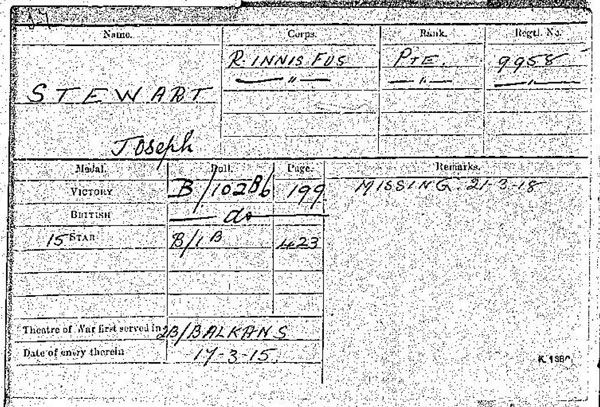 Name. Corps. Rank. Regtl. No.
R. INNIS FUS PTE. 9958
— " — — " — — " —
STEWART
Joseph
Medal. Roll. Page. Remarks.
VICTORY B/102B6 199 MISSING. 21-3-18
BRITISH — do —
15 STAR B/1 B 423
Theatre of War first served in 2B/BALKANS
Date of entry therein 17-3-15.
K. 1380